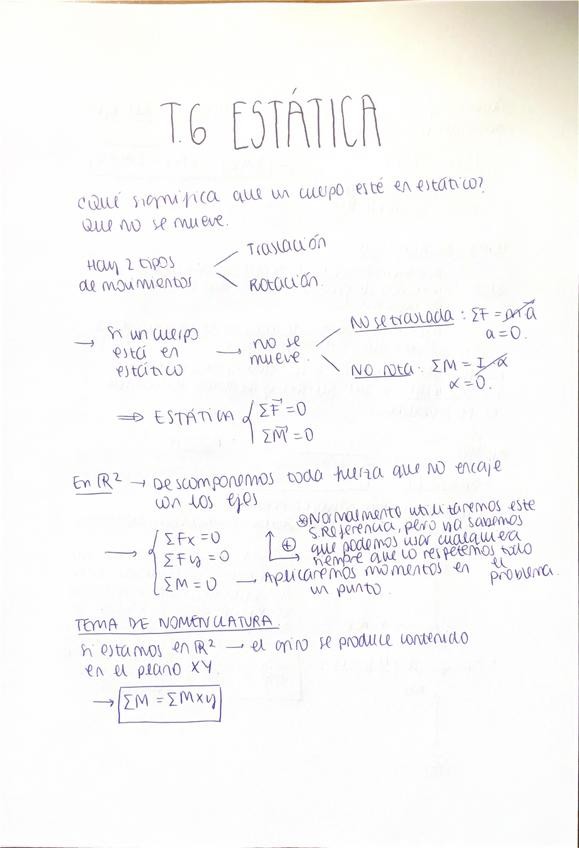 T.6 ESTÁTICA
¿Qué significa que un cuerpo esté en estático?
Que no se mueve.
Hay 2 tipos
de movimientos
Traslación
Rotación
→ Si un cuerpo
está en
estático
→ no se
mueve.
No se traslada: ΣF = m·a⃗
a = 0.
No rota: ΣM = I·α
α = 0.
⇒ ESTÁTICA { ΣF⃗ = 0
ΣM⃗ = 0
En ℝ² → Descomponemos toda fuerza que no encaje
con los ejes
→ { ΣFx = 0
ΣFy = 0
ΣM = 0
⊕
⊛ Normalmente utilizaremos este
S. Referencia, pero ya sabemos
que podemos usar cualquiera
siempre que lo respetemos todo
el problema.
→ Aplicaremos momentos en
un punto.
TEMA DE NOMENCLATURA.
Si estamos en ℝ² → el giro se produce contenido
en el plano XY.
→ ΣM = ΣMxy